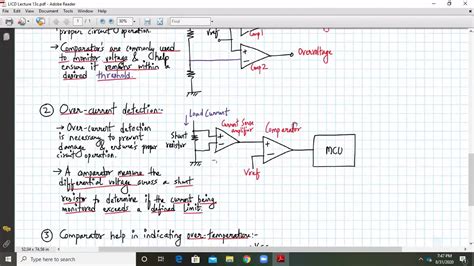 LICD Lecture 13c.pdf - Adobe Reader
File Edit View Window Help
proper circuit operation.
→ Comparator's are commonly used
to monitor voltage & help
ensure it remains within a
desired threshold.
Vref
Comp1
Comp2
Overvoltage
② Over-current detection:-
→ Over-current detection
is necessary to prevent
damage & ensure's proper
circuit operation.
→ A comparator measure the
differential voltage across a shunt
resistor to determine if the current being
monitored exceeds a defined limit.
Load Current
Shunt
resistor
Current Sense
amplifier
Comparator
Vref
MCU
③ Comparator help in indicating over-temperature:-
52.04 x 74.56 in
Type here to search
7:47 PM
8/31/2020